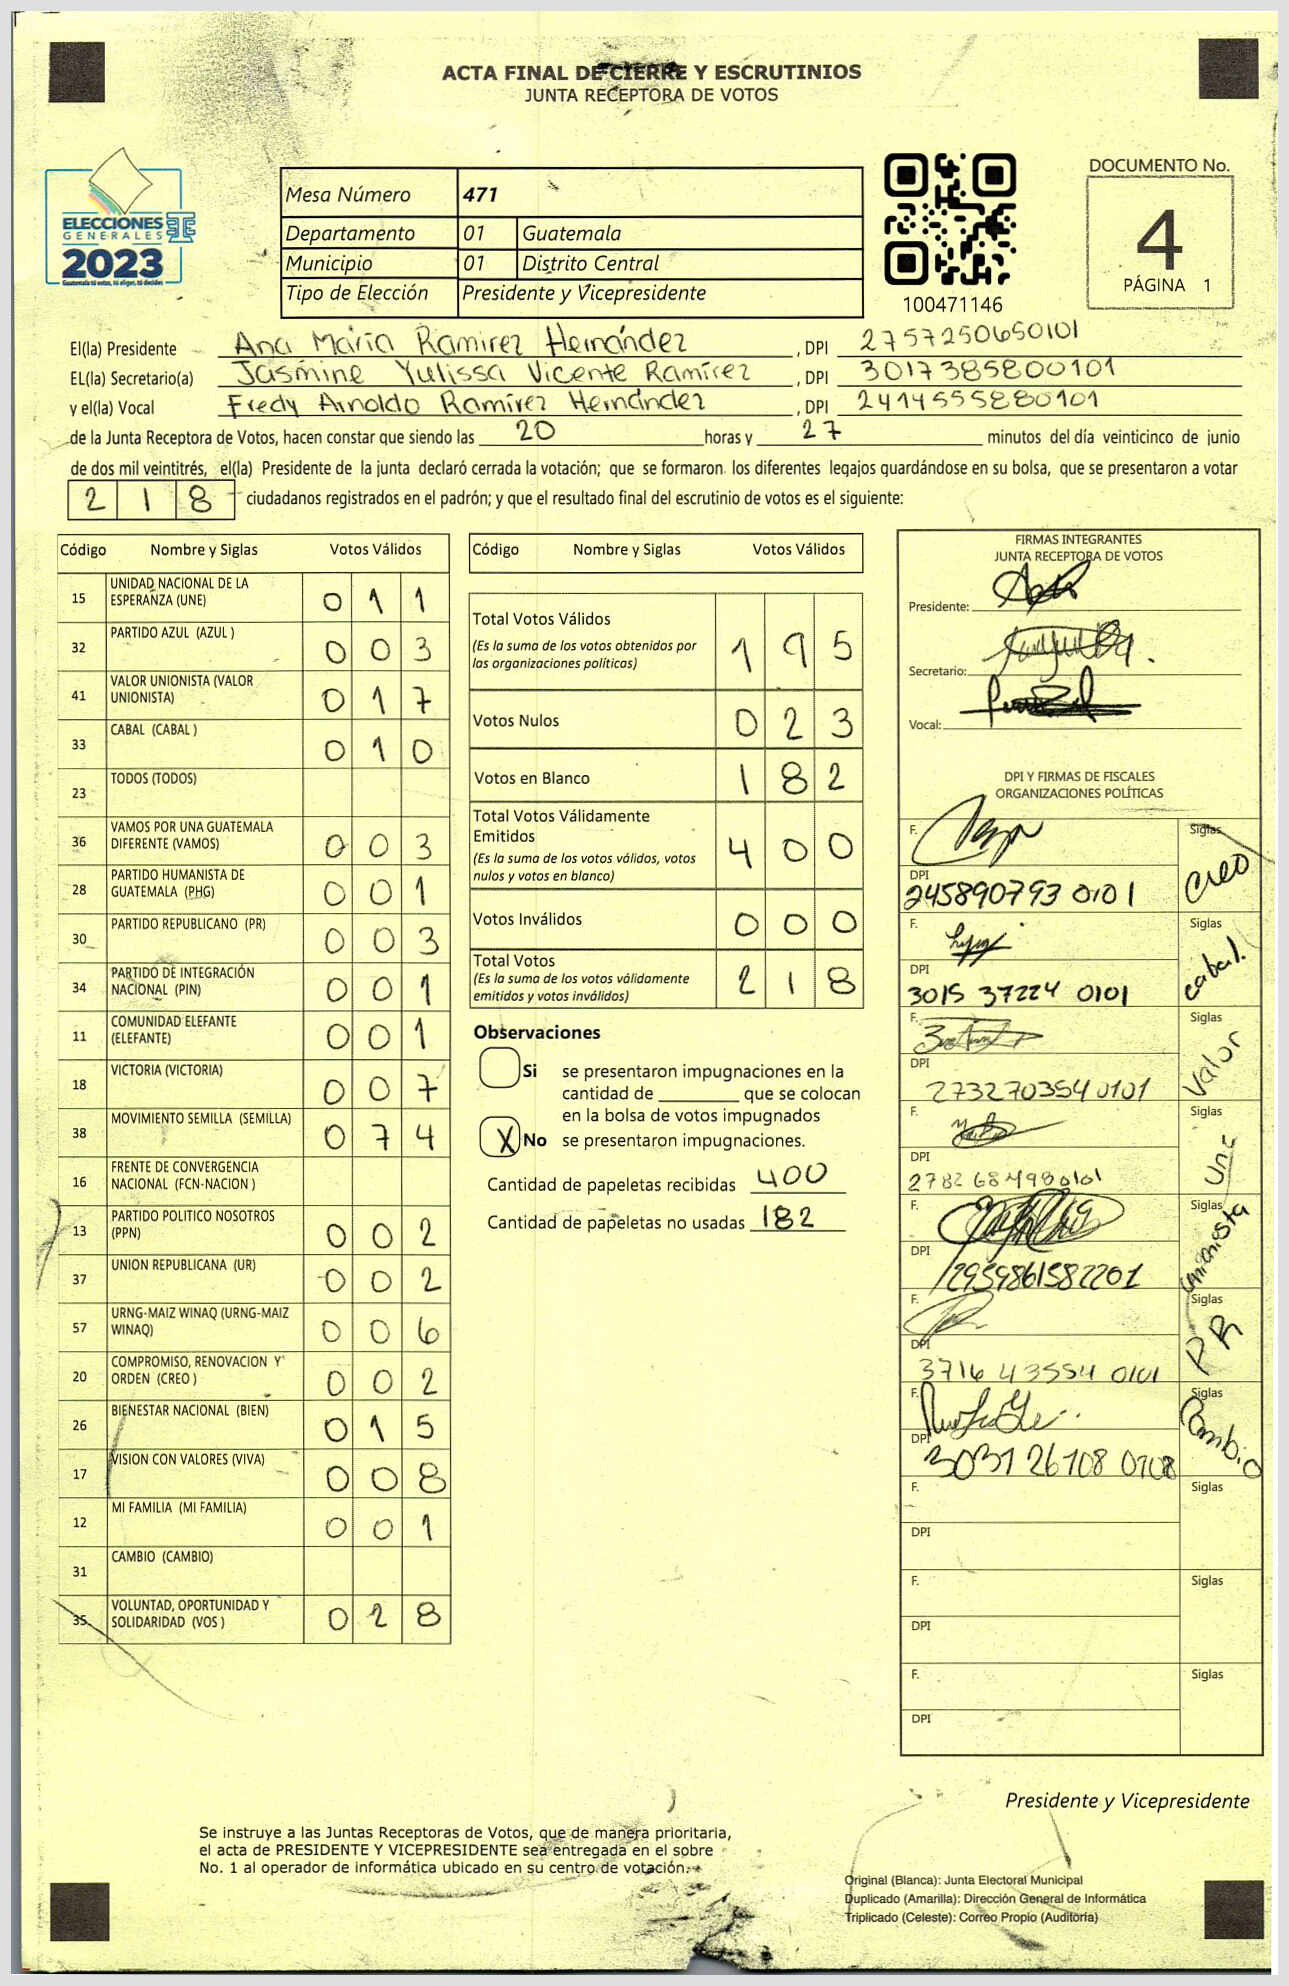 ACTA FINAL DE CIERRE Y ESCRUTINIOS
JUNTA RECEPTORA DE VOTOS
ELECCIONES
GENERALES
2023
Guatemala tú votas, tú eliges, tú decides
Mesa Número 471
Departamento 01 Guatemala
Municipio 01 Distrito Central
Tipo de Elección Presidente y Vicepresidente
100471146
DOCUMENTO No.
4
PÁGINA 1
El(la) Presidente Ana María Ramirez Hernández , DPI 2757250650101
EL(la) Secretario(a) Jasmine Yulissa Vicente Ramírez , DPI 3017385800101
y el(la) Vocal Fredy Arnoldo Ramírez Hernández , DPI 2414555880101
de la Junta Receptora de Votos, hacen constar que siendo las 20 horas y 27 minutos del día veinticinco de junio
de dos mil veintitrés, el(la) Presidente de la junta declaró cerrada la votación; que se formaron los diferentes legajos guardándose en su bolsa, que se presentaron a votar
218 ciudadanos registrados en el padrón; y que el resultado final del escrutinio de votos es el siguiente:
Código Nombre y Siglas Votos Válidos
15 UNIDAD NACIONAL DE LA ESPERANZA (UNE) 011
32 PARTIDO AZUL (AZUL ) 003
41 VALOR UNIONISTA (VALOR UNIONISTA) 017
33 CABAL (CABAL ) 010
23 TODOS (TODOS)
36 VAMOS POR UNA GUATEMALA DIFERENTE (VAMOS) 003
28 PARTIDO HUMANISTA DE GUATEMALA (PHG) 001
30 PARTIDO REPUBLICANO (PR) 003
34 PARTIDO DE INTEGRACIÓN NACIONAL (PIN) 001
11 COMUNIDAD ELEFANTE (ELEFANTE) 001
18 VICTORIA (VICTORIA) 007
38 MOVIMIENTO SEMILLA (SEMILLA) 074
16 FRENTE DE CONVERGENCIA NACIONAL (FCN-NACION )
13 PARTIDO POLITICO NOSOTROS (PPN) 002
37 UNION REPUBLICANA (UR) 002
57 URNG-MAIZ WINAQ (URNG-MAIZ WINAQ) 006
20 COMPROMISO, RENOVACION Y ORDEN (CREO ) 002
26 BIENESTAR NACIONAL (BIEN) 015
17 VISION CON VALORES (VIVA) 008
12 MI FAMILIA (MI FAMILIA) 001
31 CAMBIO (CAMBIO)
35 VOLUNTAD, OPORTUNIDAD Y SOLIDARIDAD (VOS ) 028
Código Nombre y Siglas Votos Válidos
Total Votos Válidos 195
(Es la suma de los votos obtenidos por
las organizaciones políticas)
Votos Nulos 023
Votos en Blanco 182
Total Votos Válidamente
Emitidos 400
(Es la suma de los votos válidos, votos
nulos y votos en blanco)
Votos Inválidos 000
Total Votos 218
(Es la suma de los votos válidamente
emitidos y votos inválidos)
Observaciones
Si se presentaron impugnaciones en la
cantidad de ________ que se colocan
en la bolsa de votos impugnados
X No se presentaron impugnaciones.
Cantidad de papeletas recibidas 400
Cantidad de papeletas no usadas 182
FIRMAS INTEGRANTES
JUNTA RECEPTORA DE VOTOS
Presidente:
Secretario:
Vocal:
DPI Y FIRMAS DE FISCALES
ORGANIZACIONES POLÍTICAS
F. Siglas Creo
DPI 245890793 0101
F. Siglas cabal.
DPI 3015 37224 0101
F. Siglas Valor
DPI 273270354 0101
F. Siglas une
DPI 2782 684980101
F. Siglas unionista
DPI 2959861582201
F. Siglas PR
DPI 3716 43554 0101
F. Siglas Cambio
DPI 3031 26108 0108
F. Siglas
DPI
F. Siglas
DPI
F. Siglas
DPI
Presidente y Vicepresidente
Se instruye a las Juntas Receptoras de Votos, que de manera prioritaria,
el acta de PRESIDENTE Y VICEPRESIDENTE sea entregada en el sobre
No. 1 al operador de informática ubicado en su centro de votación.
Original (Blanca): Junta Electoral Municipal
Duplicado (Amarilla): Dirección General de Informática
Triplicado (Celeste): Correo Propio (Auditoría)